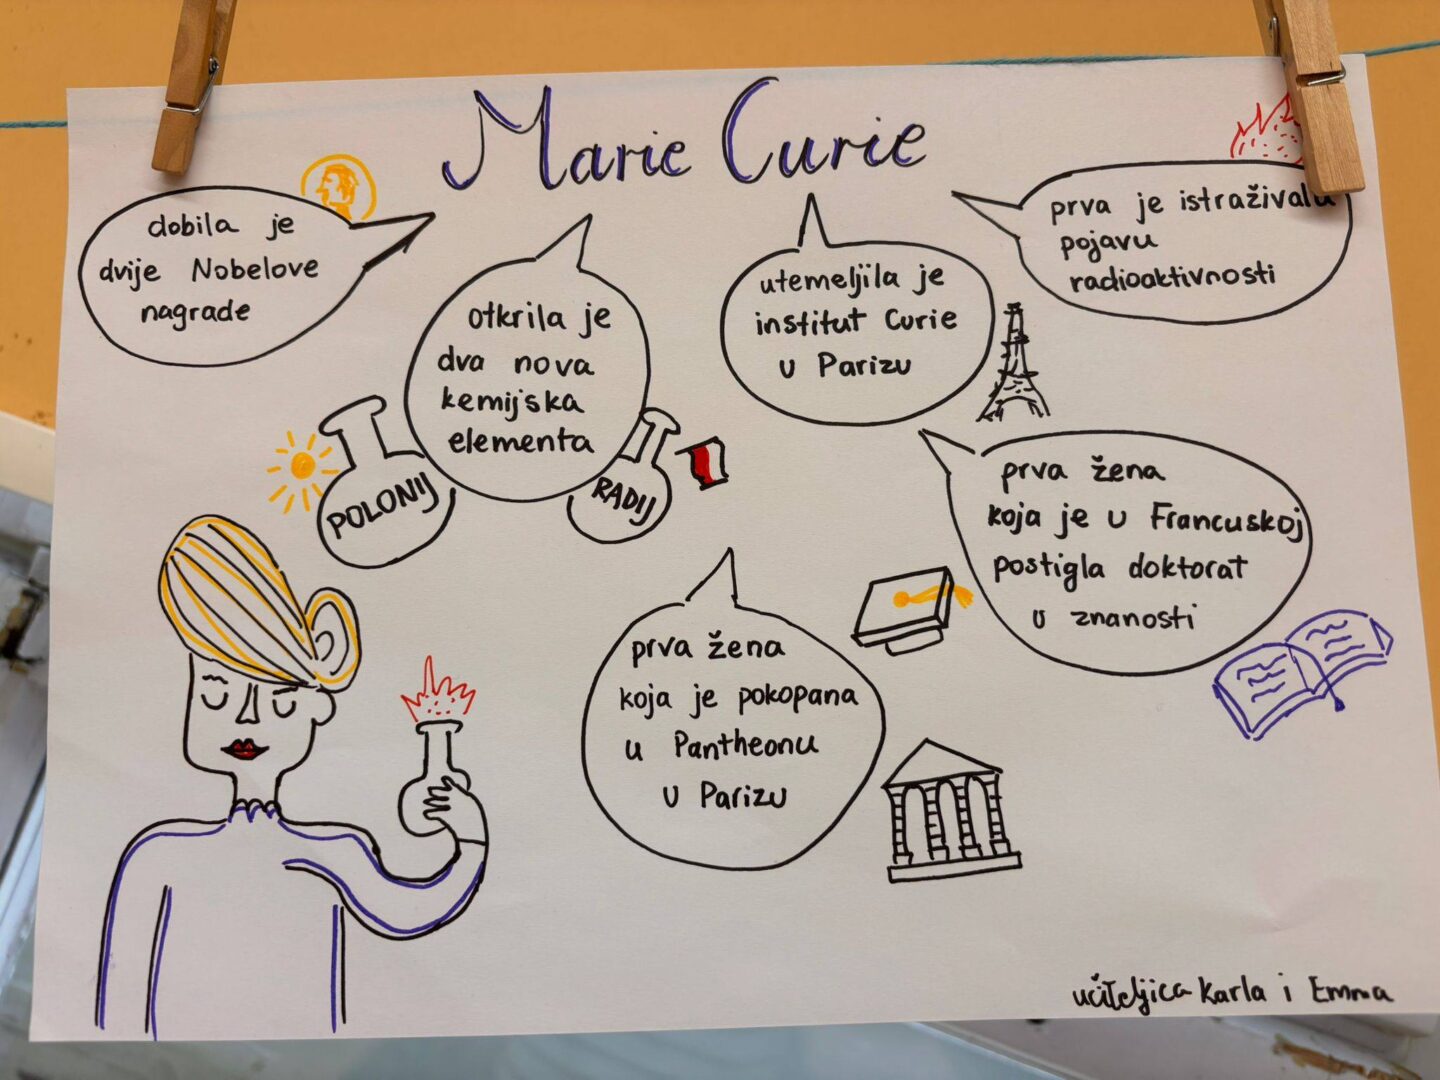 Marie Curie
dobila je
dvije Nobelove
nagrade
otkrila je
dva nova
kemijska
elementa
POLONIJ
RADIJ
utemeljila je
institut Curie
u Parizu
prva je istraživala
pojavu
radioaktivnosti
prva žena
koja je u Francuskoj
postigla doktorat
u znanosti
prva žena
koja je pokopana
u Pantheonu
u Parizu
učiteljica Karla i Emma